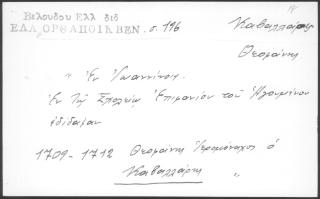 Βελουδου Ελλ διδ
ΕΛΛ ΟΡΘ ΑΠΟΙΚ ΒΕΝ. σ. 196
Καβαλλάρης
Θεωμάνης
" Εν Ιωαννίνοις.
Εν τῇ Σχολείῳ Επιφανίου του Ηγουμένου
ἐδίδαξαν
1709 - 1712 Θεωμάνης Ιερομόναχος ὁ
Καβαλλάρης "